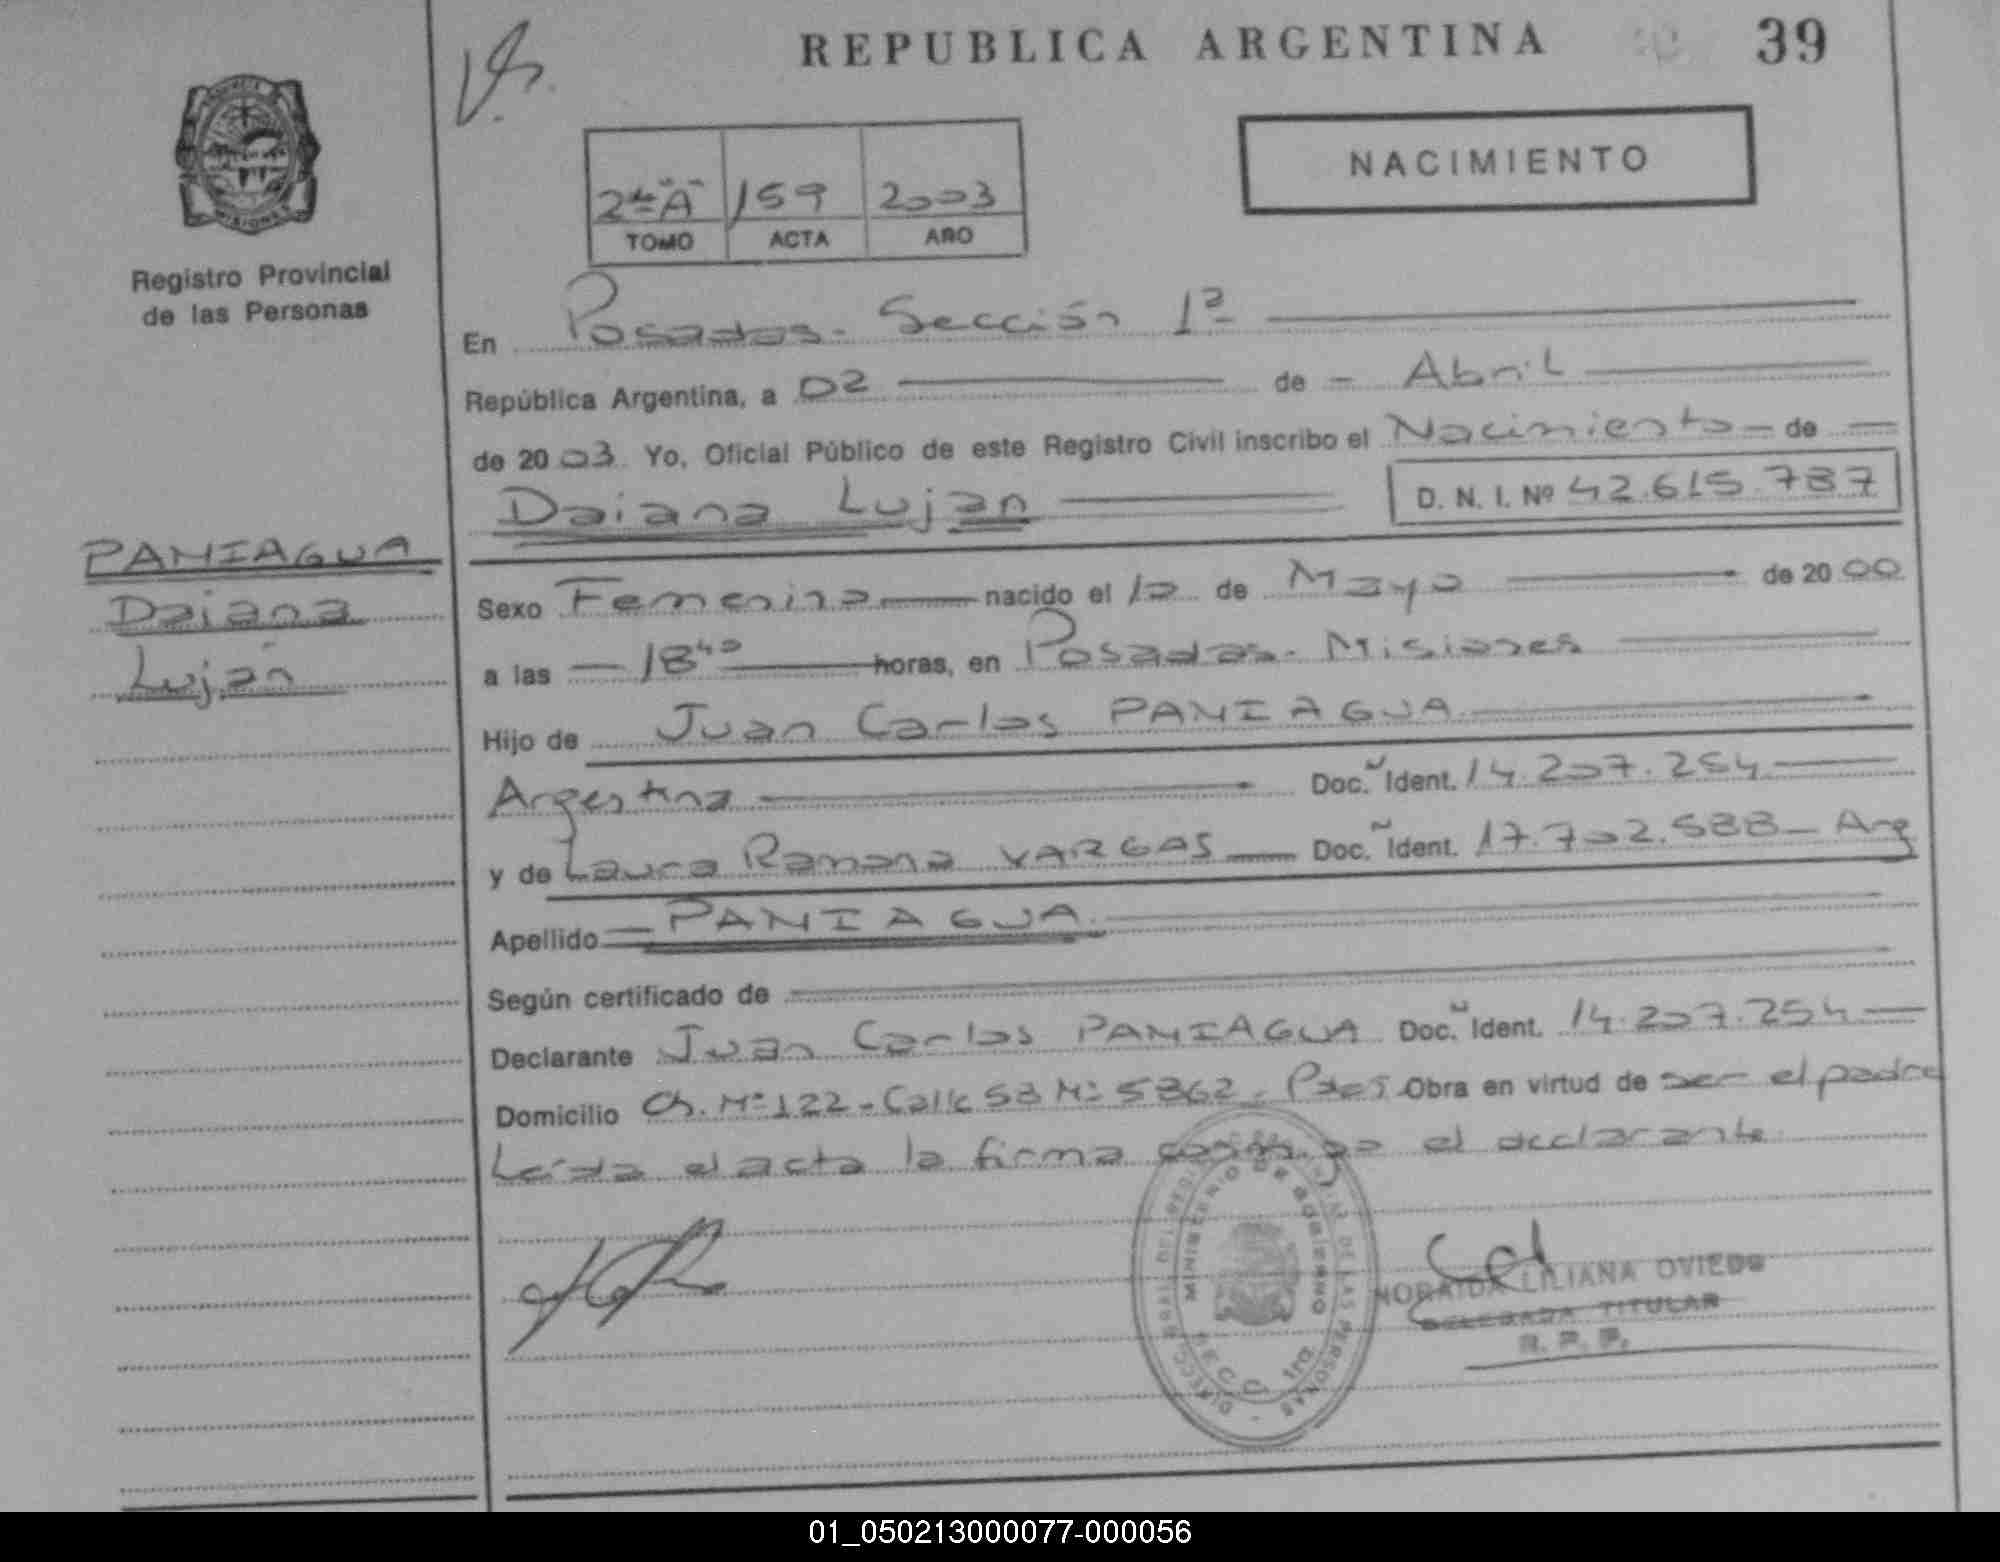 REPUBLICA ARGENTINA 39
NACIMIENTO
2do "A" 159 2003
TOMO ACTA AÑO
Registro Provincial
de las Personas
En Posadas - Sección 1ª
República Argentina, a 02 de Abril
de 2003 Yo, Oficial Público de este Registro Civil inscribo el Nacimiento de
Daiana Luján D. N. I. Nº 42.615.787
PANIAGUA
Daiana
Luján
Sexo Femenino nacido el 10 de Mayo de 2000
a las 18⁴⁰ horas, en Posadas - Misiones
Hijo de Juan Carlos PANIAGUA
Argentina Doc. Ident. 14.207.254
y de Laura Ramona VARGAS Doc. Ident. 17.702.588 - Arg
Apellido PANIAGUA
Según certificado de
Declarante Juan Carlos PANIAGUA Doc. Ident. 14.207.254
Domicilio Ch. Nº 122 - Calle 53 Nº 5862 - Obra en virtud de ser el padre
Leída el acta la firma conmigo el declarante
DIRECC. GRAL. DEL REG. DE LAS PERSONAS
MINISTERIO DE GOBIERNO
SECC. 1ra.
LILIANA OVIEDO
DELEGADA TITULAR
R. P. P.
01_050213000077-000056